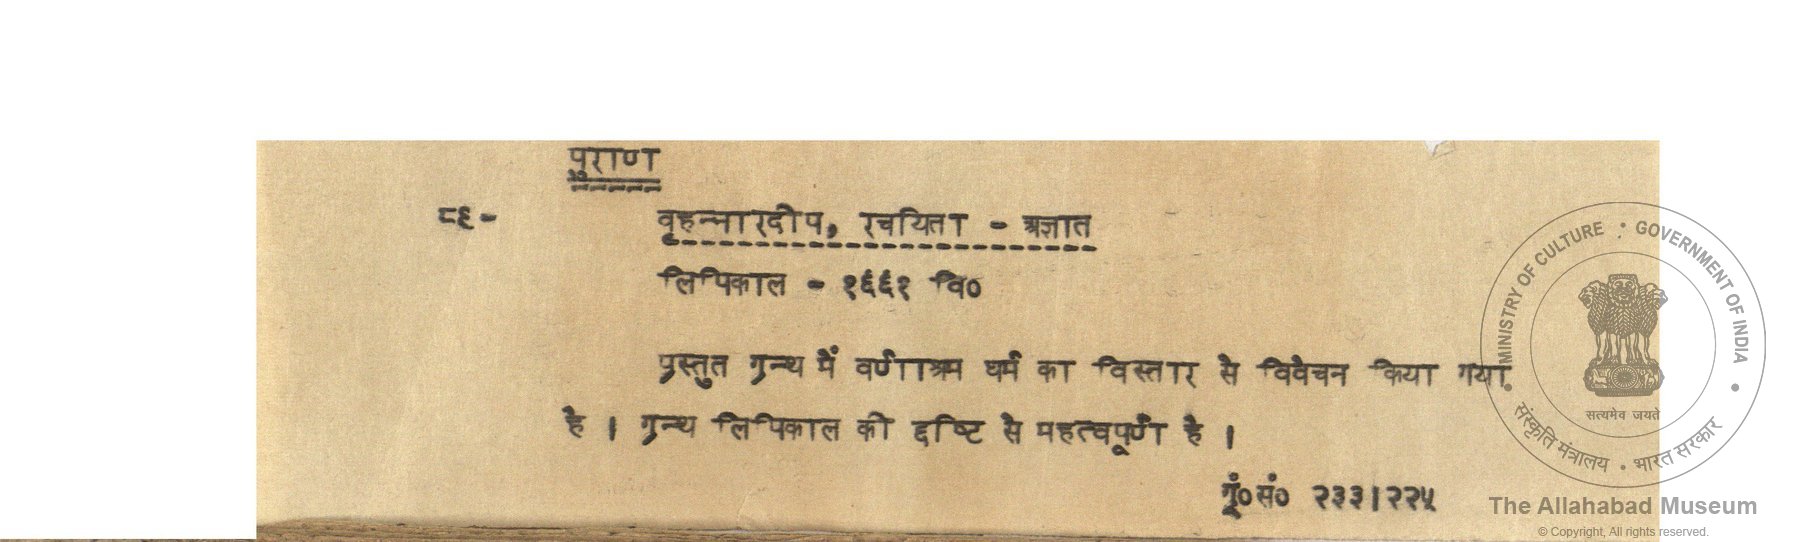 पुराण
८६- वृहन्नारदीप, रचयिता - अज्ञात
लिपिकाल - १६६१ वि०
प्रस्तुत ग्रन्थ में वर्णाश्रम धर्म का विस्तार से विवेचन किया गया
है । ग्रन्थ लिपिकाल की दृष्टि से महत्वपूर्ण है ।
गं०सं० २३३।२२५
MINISTRY OF CULTURE • GOVERNMENT OF INDIA
सत्यमेव जयते
संस्कृति मंत्रालय • भारत सरकार
The Allahabad Museum
© Copyright, All rights reserved.